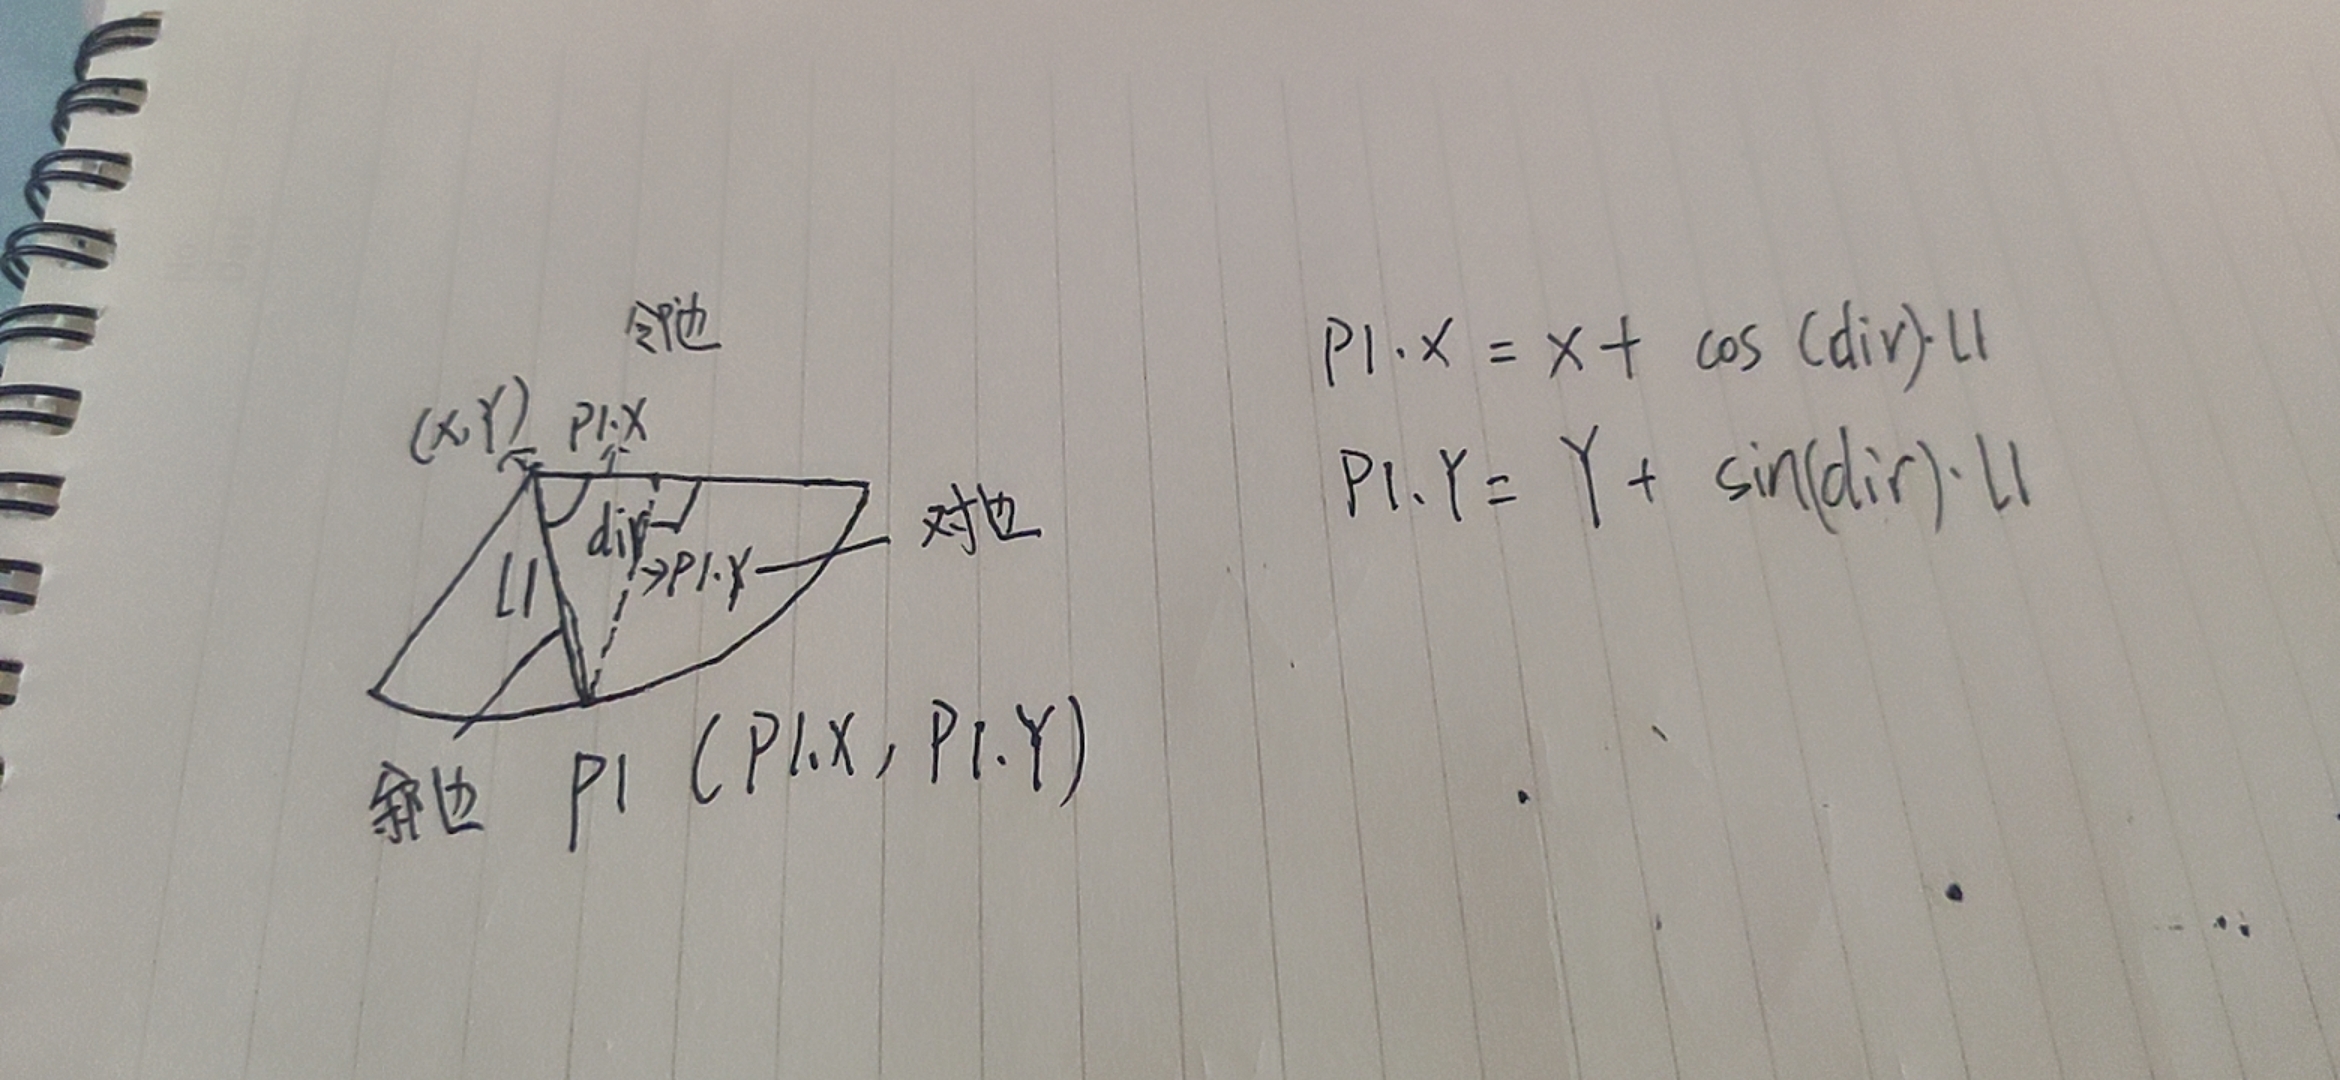 邻边
(X,Y) P1.X
dir
L1
→P1.Y
对边
斜边
P1 (P1.X, P1.Y)
P1.X = X + cos (dir)·L1
P1.Y = Y + sin(dir)·L1